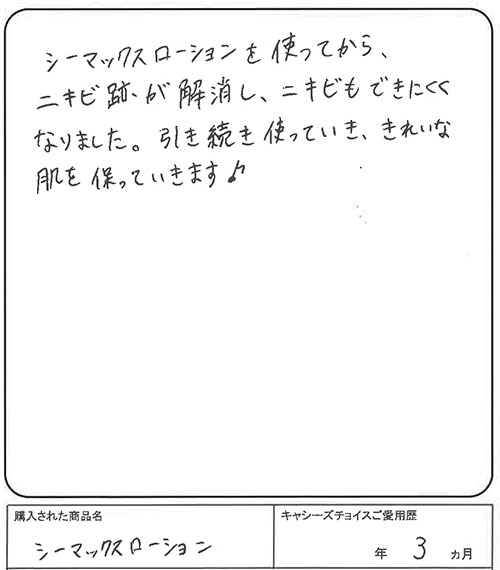 シーマックスローションを使ってから、
ニキビ跡が解消し、ニキビもできにくく
なりました。引き続き使っていき、きれいな
肌を保っていきます♪
購入された商品名
キャシーズチョイスご愛用歴
シーマックスローション
年 3 ヵ月